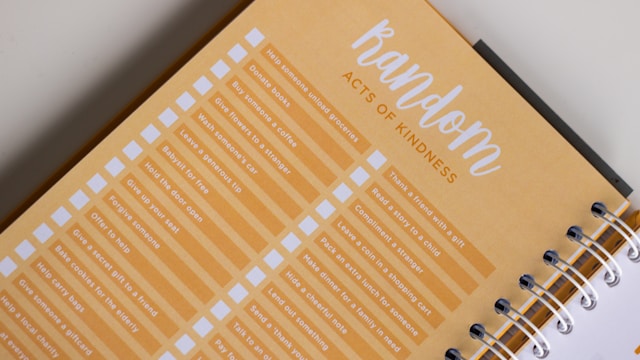 Random
ACTS OF KINDNESS
Help someone unload groceries
Donate books
Buy someone a coffee
Give flowers to a stranger
Wash someone's car
Leave a generous tip
Babysit for free
Hold the door open
Give up your seat
Forgive someone
Offer to help
Give a secret gift to a friend
Bake cookies for the elderly
Help carry bags
Give someone a giftcard
Help a local charity
at every
Thank a friend with a gift
Read a story to a child
Compliment a stranger
Leave a coin in a shopping cart
Pack an extra lunch for someone
Make dinner for a family in need
Hide a cheerful note
Lend out something
Send a 'thank you
Talk to an
Pay fo